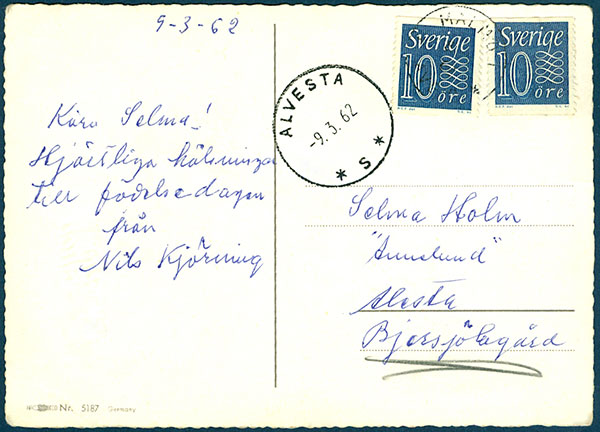 9-3-62
Kära Selma!
Hjärtliga hälsningar
till födelsedagen
från
Nils Kjörning
Nr. 5187 Germany
ALVESTA
-9.3.62
* S *
MALMÖ 1
Sverige
10
öre
Sverige
10
öre
Selma Holm
"Annelund"
Alvesta